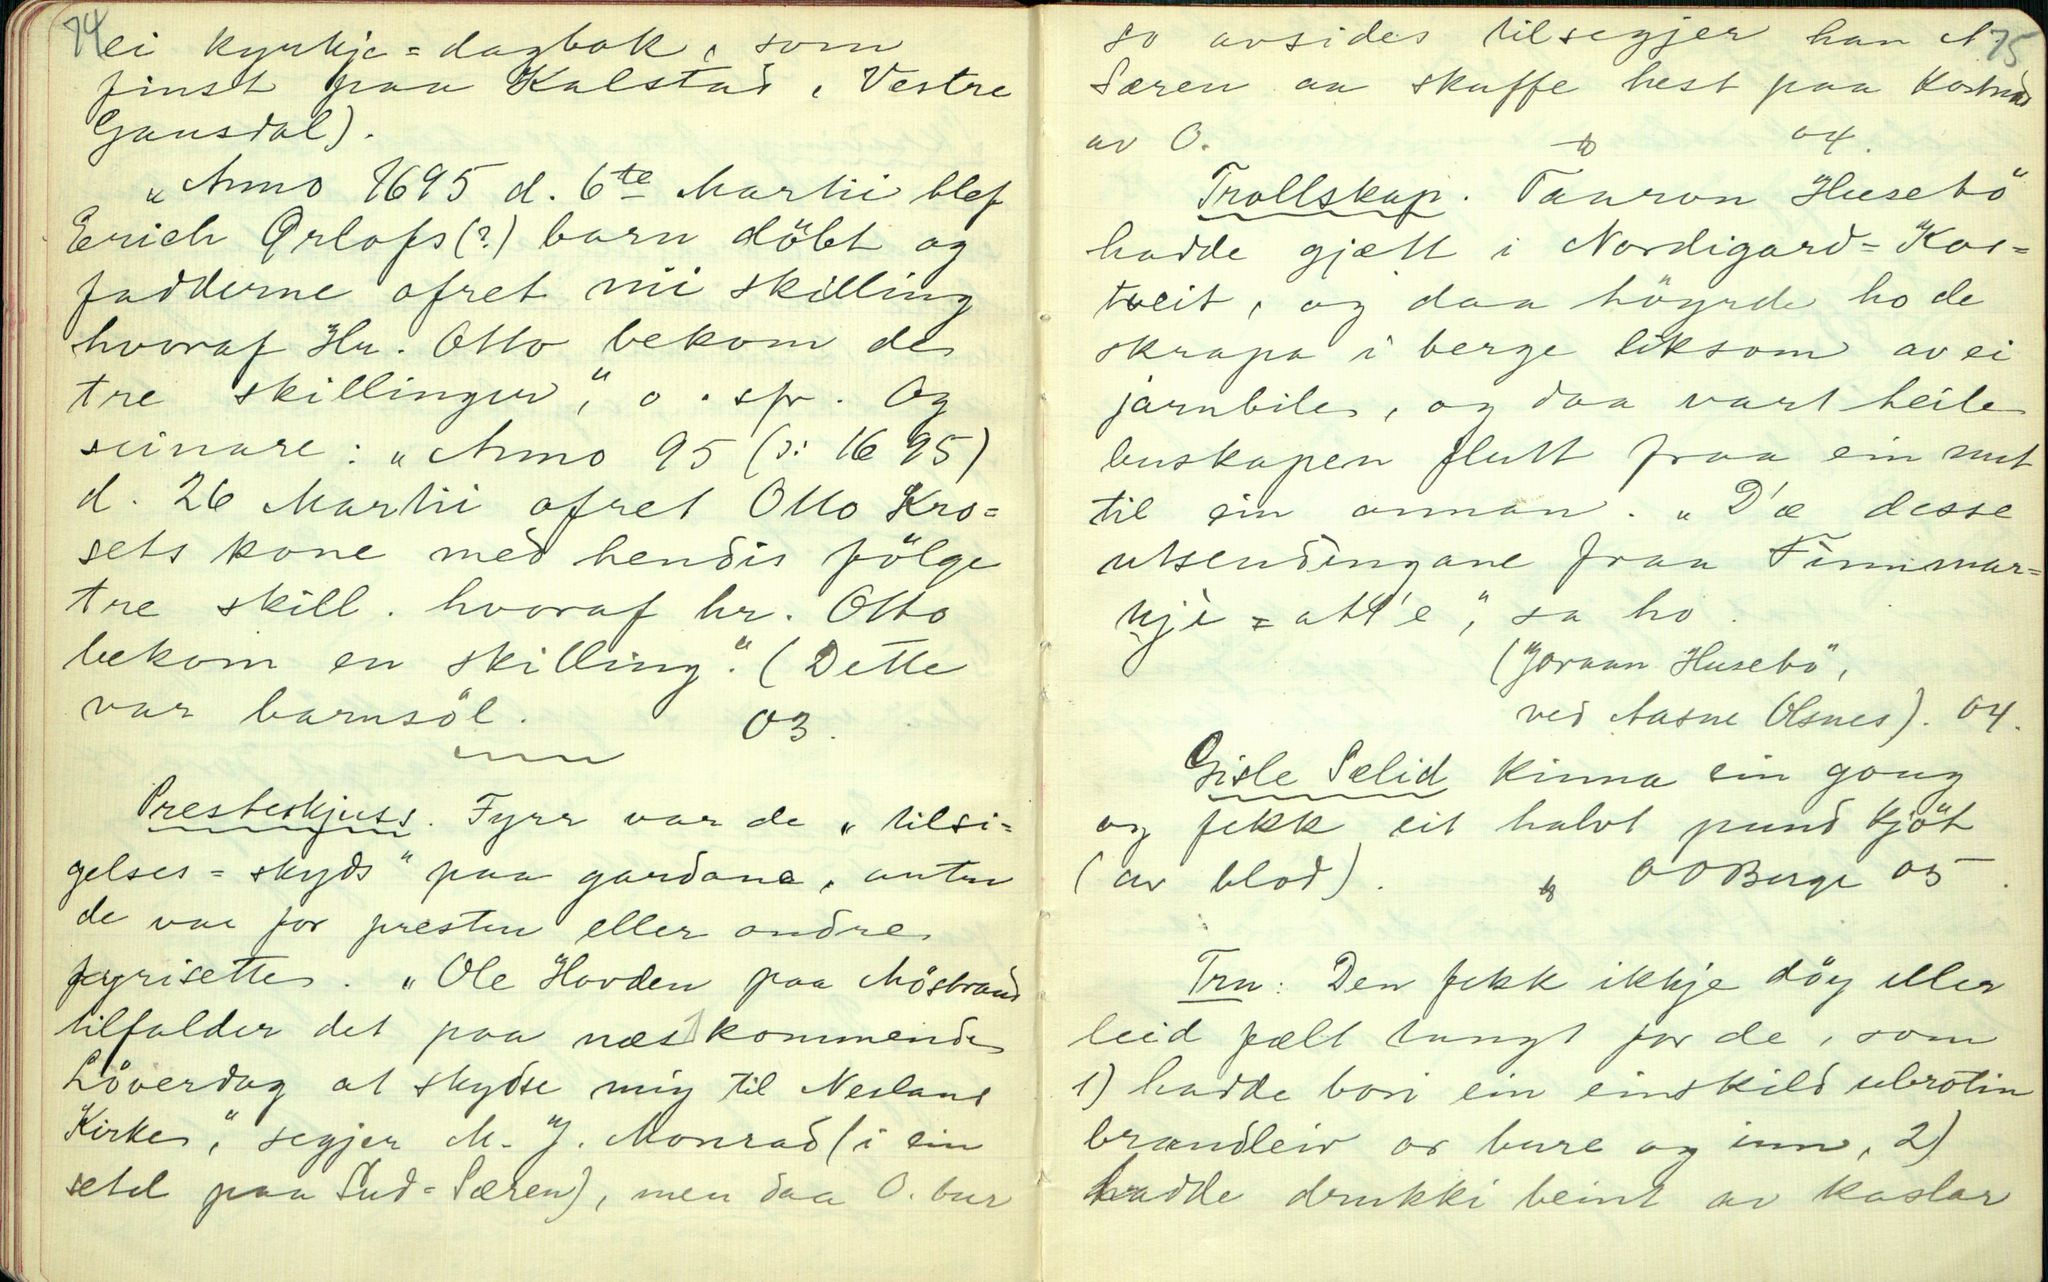 74
ei kyrkje=dagbok, som
finst paa Kalstad, Vestre
Gausdal).
"Anno 1695 d. 6te Martii blef
Erich Orlofs(?) barn döbt og
fadderne ofret nii skilling
hvoraf Hr. Otto bekom de
tre skillinger", o. sfr. Og
seinare: "Anno 95 (ɔ: 1695)
d. 26 Martii ofret Otto Kro=
sets kone med hendis fölge
tre skill. hvoraf hr. Otto
bekom en skilling". (Dette
var barnsöl. 03.
Presteskjuss. Fyrr var de "tilsi=
gelses=skyds" paa gardane, anten
de var for presten eller andre
fyrisette. "Ole Hovden paa Mösbrand
tilfalder det paa næstkommende
Löverdag at skydse mig til Nesland
Kirke," segjer M. J. Monrad (i ein
setel paa Sud=Særen), men daa O. bur
75
so avsides tilsegjer han N.
Særen aa skaffe hest paa Kostnad
av O. 04.
Trollskap. Taaron Husebö
hadde gjætt i Nordigard=Kos=
tveit, og daa höyrde ho de
skrapa i berge liksom av ei
jarnbile, og daa vart heile
buskapen flutt fraa ein nut
til ein annan. "D'æ desse
utsendingane fraa Finnmar=
kje=att'e", sa ho.
(Joraan Husebö,
ved Aasne Olsnes). 04.
Gisle Sælid kinna ein gong
og fekk eit halvt pund kjöt
(av blod). O O Berge 05.
Tru: Den fekk ikkje döy eller
leid fælt tungt for de, som
1) hadde bori ein einskild ubrotin
brandleiv or bure og inn, 2)
hadde drukki beint av kaslar